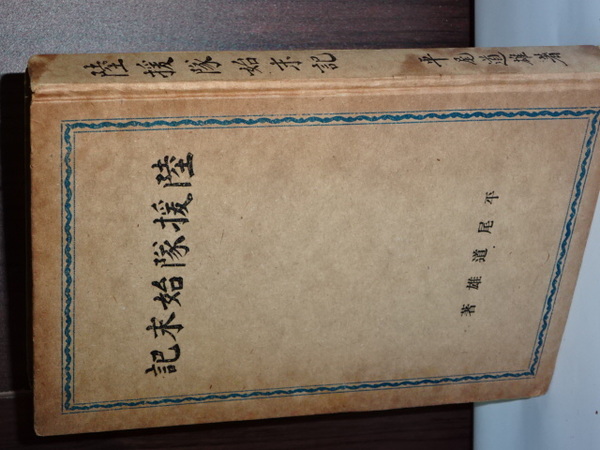 陸援隊始末記
平尾道雄著
陸援隊始末記
平尾道雄著